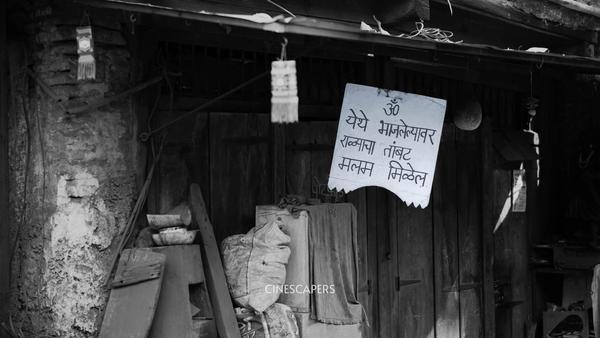 ॐ
येथे भाजलेल्यावर
राळ्याचा तांबट
मलम मिळेल
CINESCAPERS